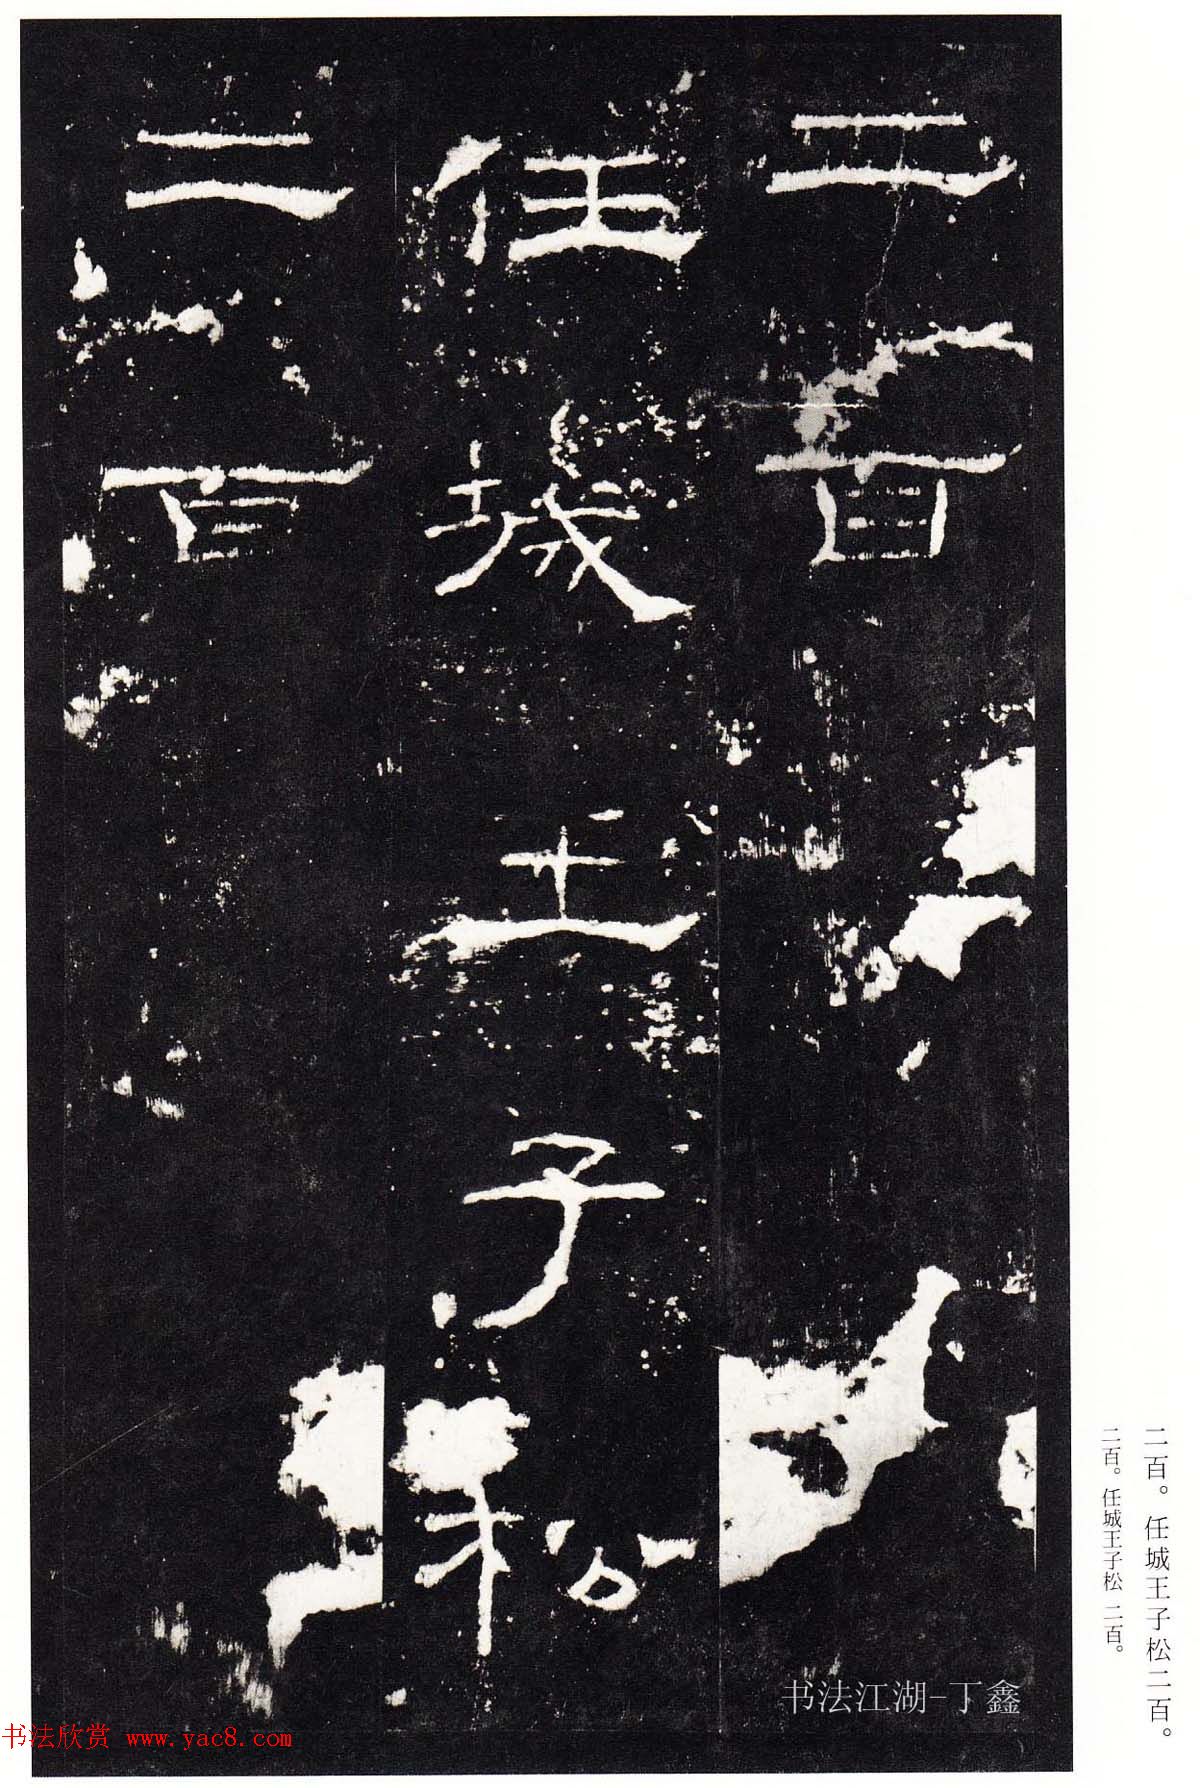 二百
任城王子松
二百
二百。任城王子松二百。
二百。任城王子松 二百。
书法江湖-丁鑫
书法欣赏 www.yac8.com